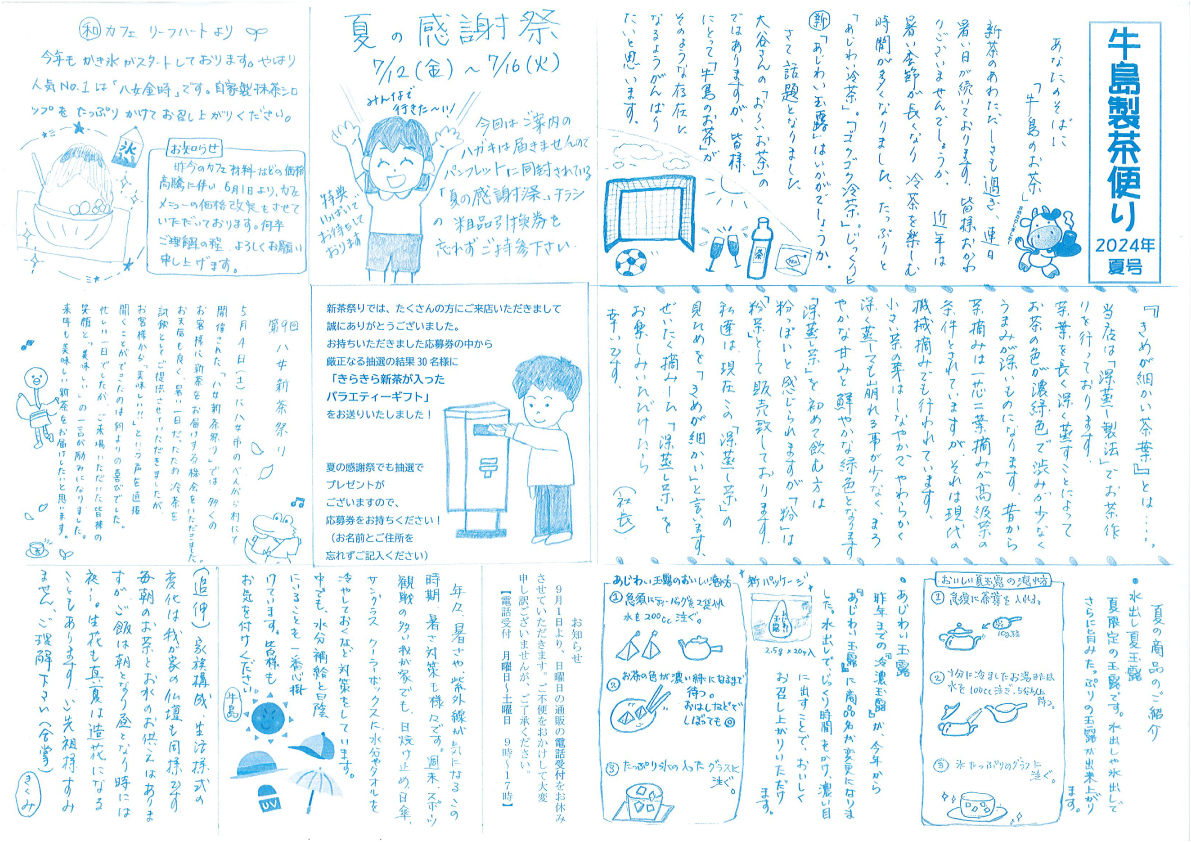 牛島製茶便り
2024年
夏号
あなたのそばに
「牛島のお茶」
新茶のあわただしさも過ぎ、連日
暑い日が続いております。皆様おかわ
りございませんでしょうか。近年は
暑い季節が長くなり冷茶を楽しむ
時間が多くなりました。たっぷりと
「あじわい冷茶」「ゴクゴク冷茶」じっくりと
㊟「あじわい玉露」はいかがでしょうか。
さて話題となりました
大谷さんの「お〜いお茶」の
ではありますが、皆様
にとって「牛島のお茶」が
そのような存在に
なるようがんばり
たいと思います。
夏の感謝祭
7/12(金)～7/16(火)
みんなで
行きた〜い♪
今回はご案内の
ハガキは届きませんので
パンフレットに同封されている
「夏の感謝祭」チラシ
の粗品引換券を
忘れずご持参下さい。
特典
いっぱいで
お待ちして
おります
㊗カフェ リーフハートより
今年もかき氷がスタートしております。やはり
人気No.1は「八女金時」です。自家製抹茶シロ
ップをたっぷりかけてお召し上がりください。
氷
お知らせ
昨今のカフェ材料などの価格
高騰に伴い6月1日より、カフェ
メニューの価格改定もさせて
いただいております。何卒
ご理解の程、よろしくお願い
申し上げます。
『きめが細かい茶葉』とは・・・・。
当店は「深蒸し製法」でお茶作
りを行っております。
茶葉を長く深く蒸すことによって
お茶の色が濃緑色で渋みが少なく
うまみが深いものになります。昔から
茶摘みは一芯二葉摘みが高級茶の
条件とされていますが、それは現代の
機械摘みでも行われています。
小さい茶の芽はしなやかでやわらかく
深蒸しても崩れる事が少なく、まろ
やかな甘みと鮮やかな緑色となります。
「深蒸し茶」を初めて飲む方は
粉っぽいと感じられますが「粉」は
「粉茶」として販売致しております。
私達は、現在この「深蒸し茶」の
見ためを「きめが細かい」と言います。
ぜいたく摘みした「深蒸し茶」を
お楽しみいただけたら
幸いです。
(社長)
新茶祭りでは、たくさんの方にご来店いただきまして
誠にありがとうございました。
お持ちいただきました応募券の中から
厳正なる抽選の結果 30 名様に
「きらきら新茶が入った
バラエティーギフト」
をお送りいたしました！
夏の感謝祭でも抽選で
プレゼントが
ございますので、
応募券をお持ちください！
（お名前とご住所を
忘れずご記入ください）
第9回
八女新茶祭り
5月4日(土)に八女市のべんがら村にて
開催された「八女新茶祭り」では、多くの
お客様に新茶をお届けする機会をいただきました。
お天気も良く、暑い一日だったため冷茶を
試飲としてご提供させていただきましたが
お客様から「美味しい!!」という声を直接
聞くことができてこれ以上ない喜びでした。
忙しい一日でしたが、ご来場いただいた皆様の
笑顔と「美味しい」の一言が励みになりました。
来年も美味しい新茶をお届けしたいと思います。
夏の商品のご紹介
•水出し夏玉露
夏限定の玉露です。水出しや氷出しで
さらに旨みたっぷりの玉露が出来上がり
ます。
おいしい夏玉露の淹れ方
① 急須に茶葉を入れる。
10g
② 十分に冷ましたお湯または
水を100cc注ぎ、5分以上
待つ。
③ 氷たっぷりのグラスに
注ぐ。
•あじわい玉露
昨年までの「冷濃玉露」が、今年から
『あじわい玉露』に商品名が変更になりま
した。水出しでじっくり時間をかけ、濃い目
に出すことで、おいしく
お召し上がりいただけ
ます。
新パッケージ
2.5g×20ヶ入
あじわい玉露のおいしい淹れ方
① 急須にティーバッグを2袋入れ
水を200cc注ぐ。
② お茶の色が濃い緑になるまで
待つ。
おはしなどで
しぼっても◎
③ たっぷり氷の入ったグラスに
注ぐ。
お知らせ
９月１日より、日曜日の通販の電話受付をお休み
させていただきます。ご不便をおかけして大変
申し訳ございませんが、ご了承ください。
【電話受付　月曜日～土曜日　９時～１７時】
年々、暑さや、紫外線が気になるこの
時期、暑さ対策も様々です。週末、スポーツ
観戦の多い我が家でも、日焼け止め、日傘、
サングラス クーラーボックスに水分やタオルを
冷やしておくなど対策をしています。
中でも、水分補給と日陰
にいることも一番心掛
けています。皆様も
お気を付けください
UV
(追伸)家族構成、生活様式の
変化は我が家の仏壇も同様です
毎朝のお茶とお水のお供えはありま
すが、ご飯は朝となり昼となり時には
夜…。生花も真夏は造花になる
こともあります。ご先祖様すみ
ません、ご理解下さい(合掌)
きくみ